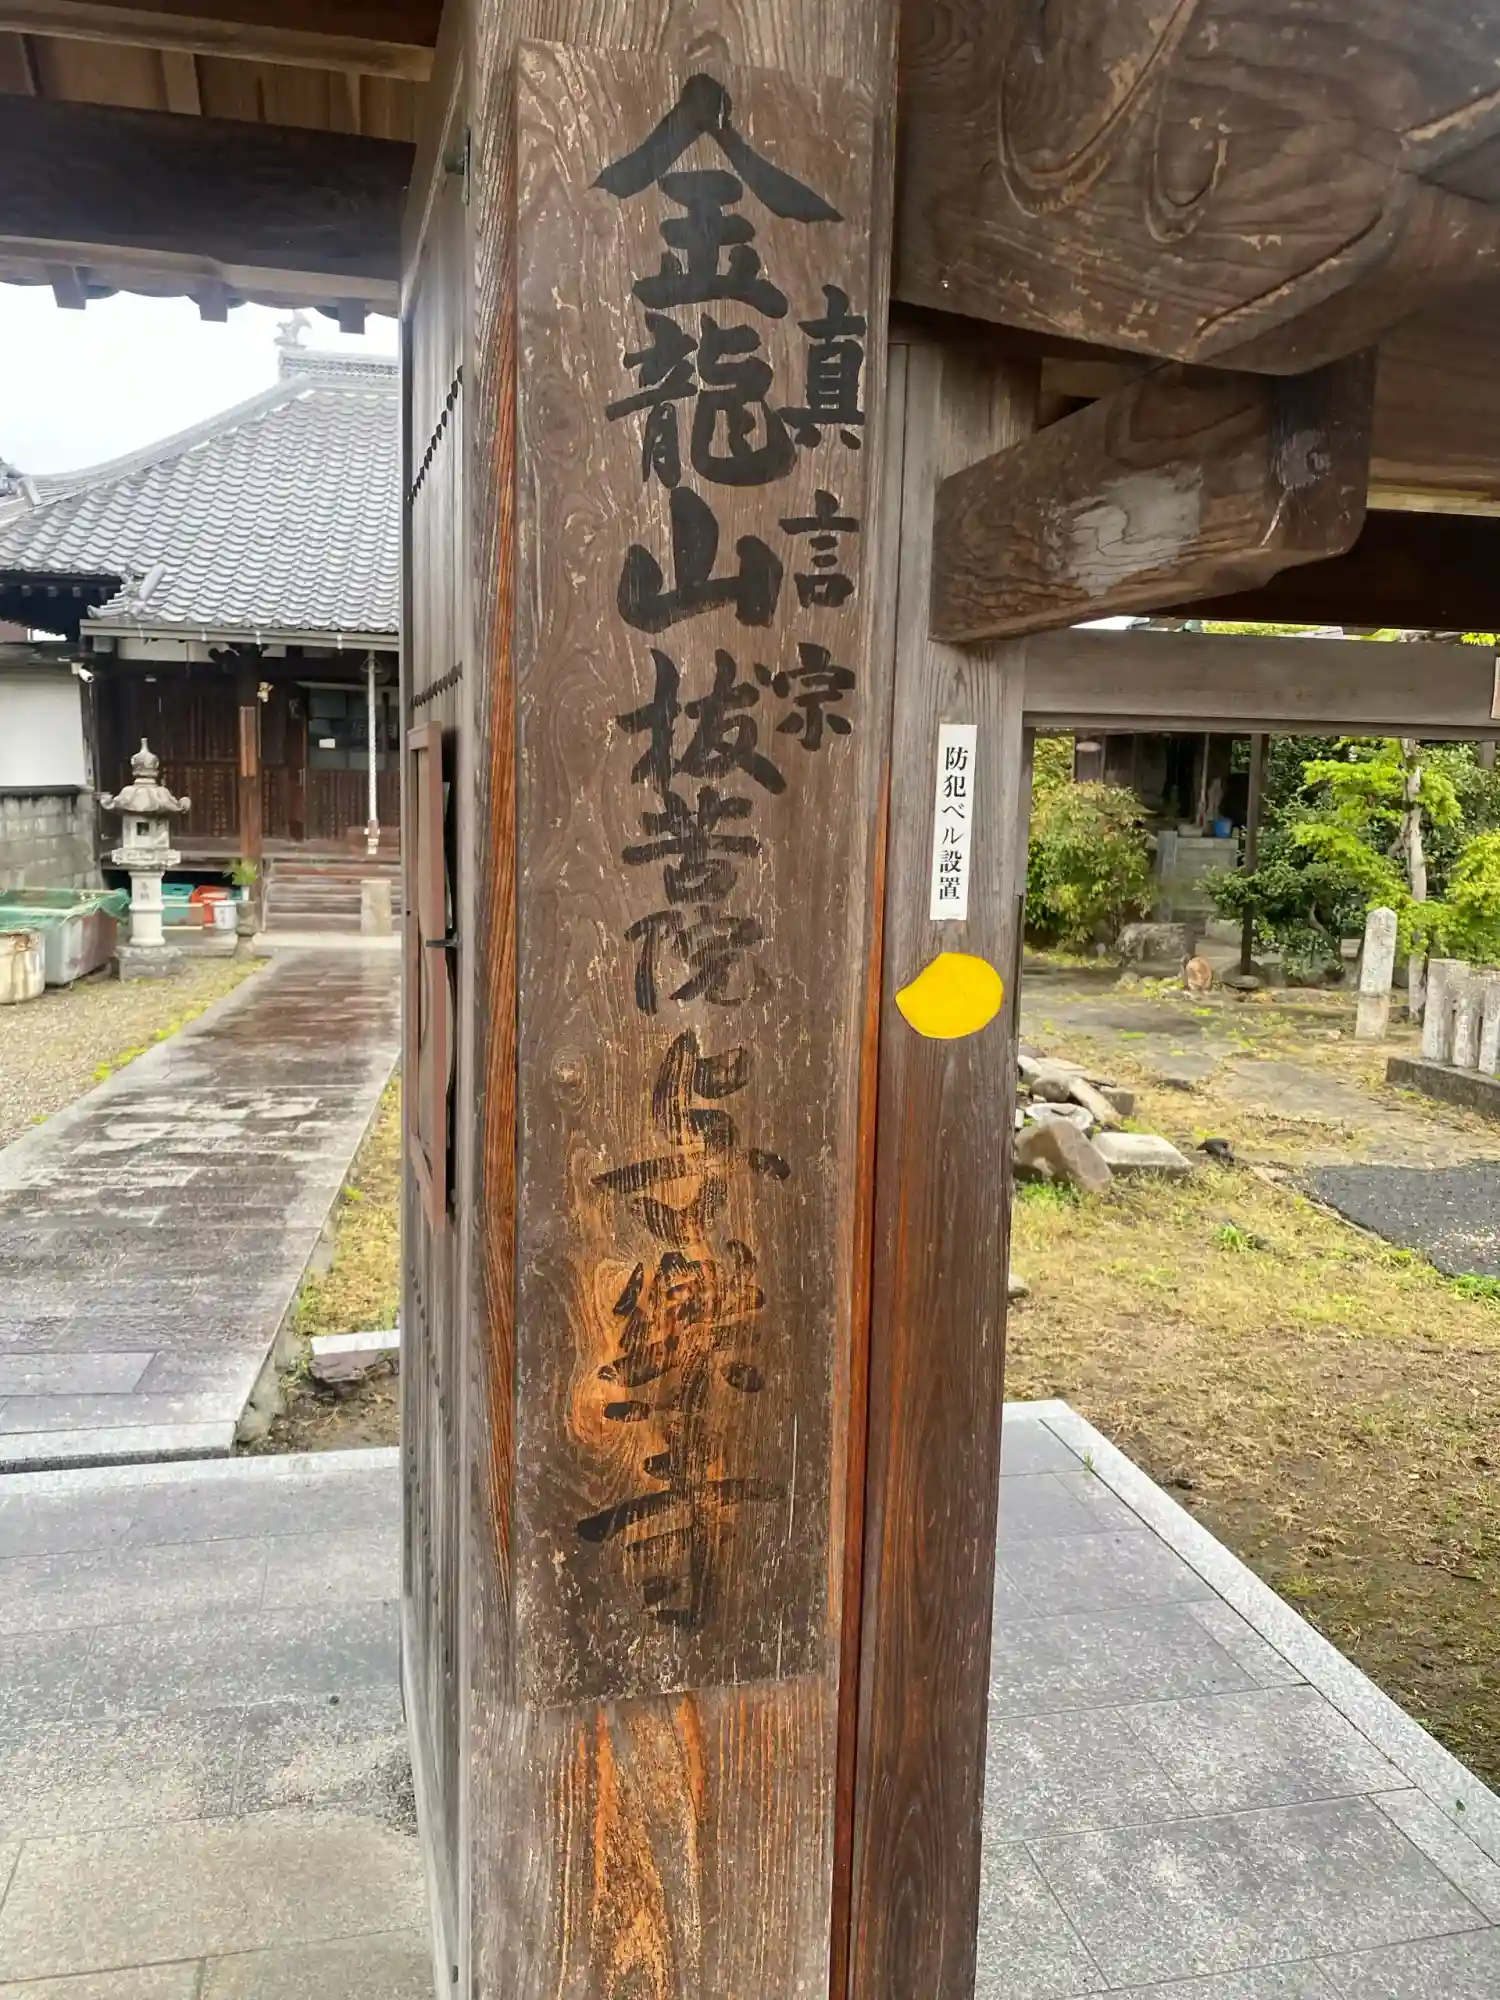 真言宗
金龍山抜苦院与樂寺
防犯ベル設置